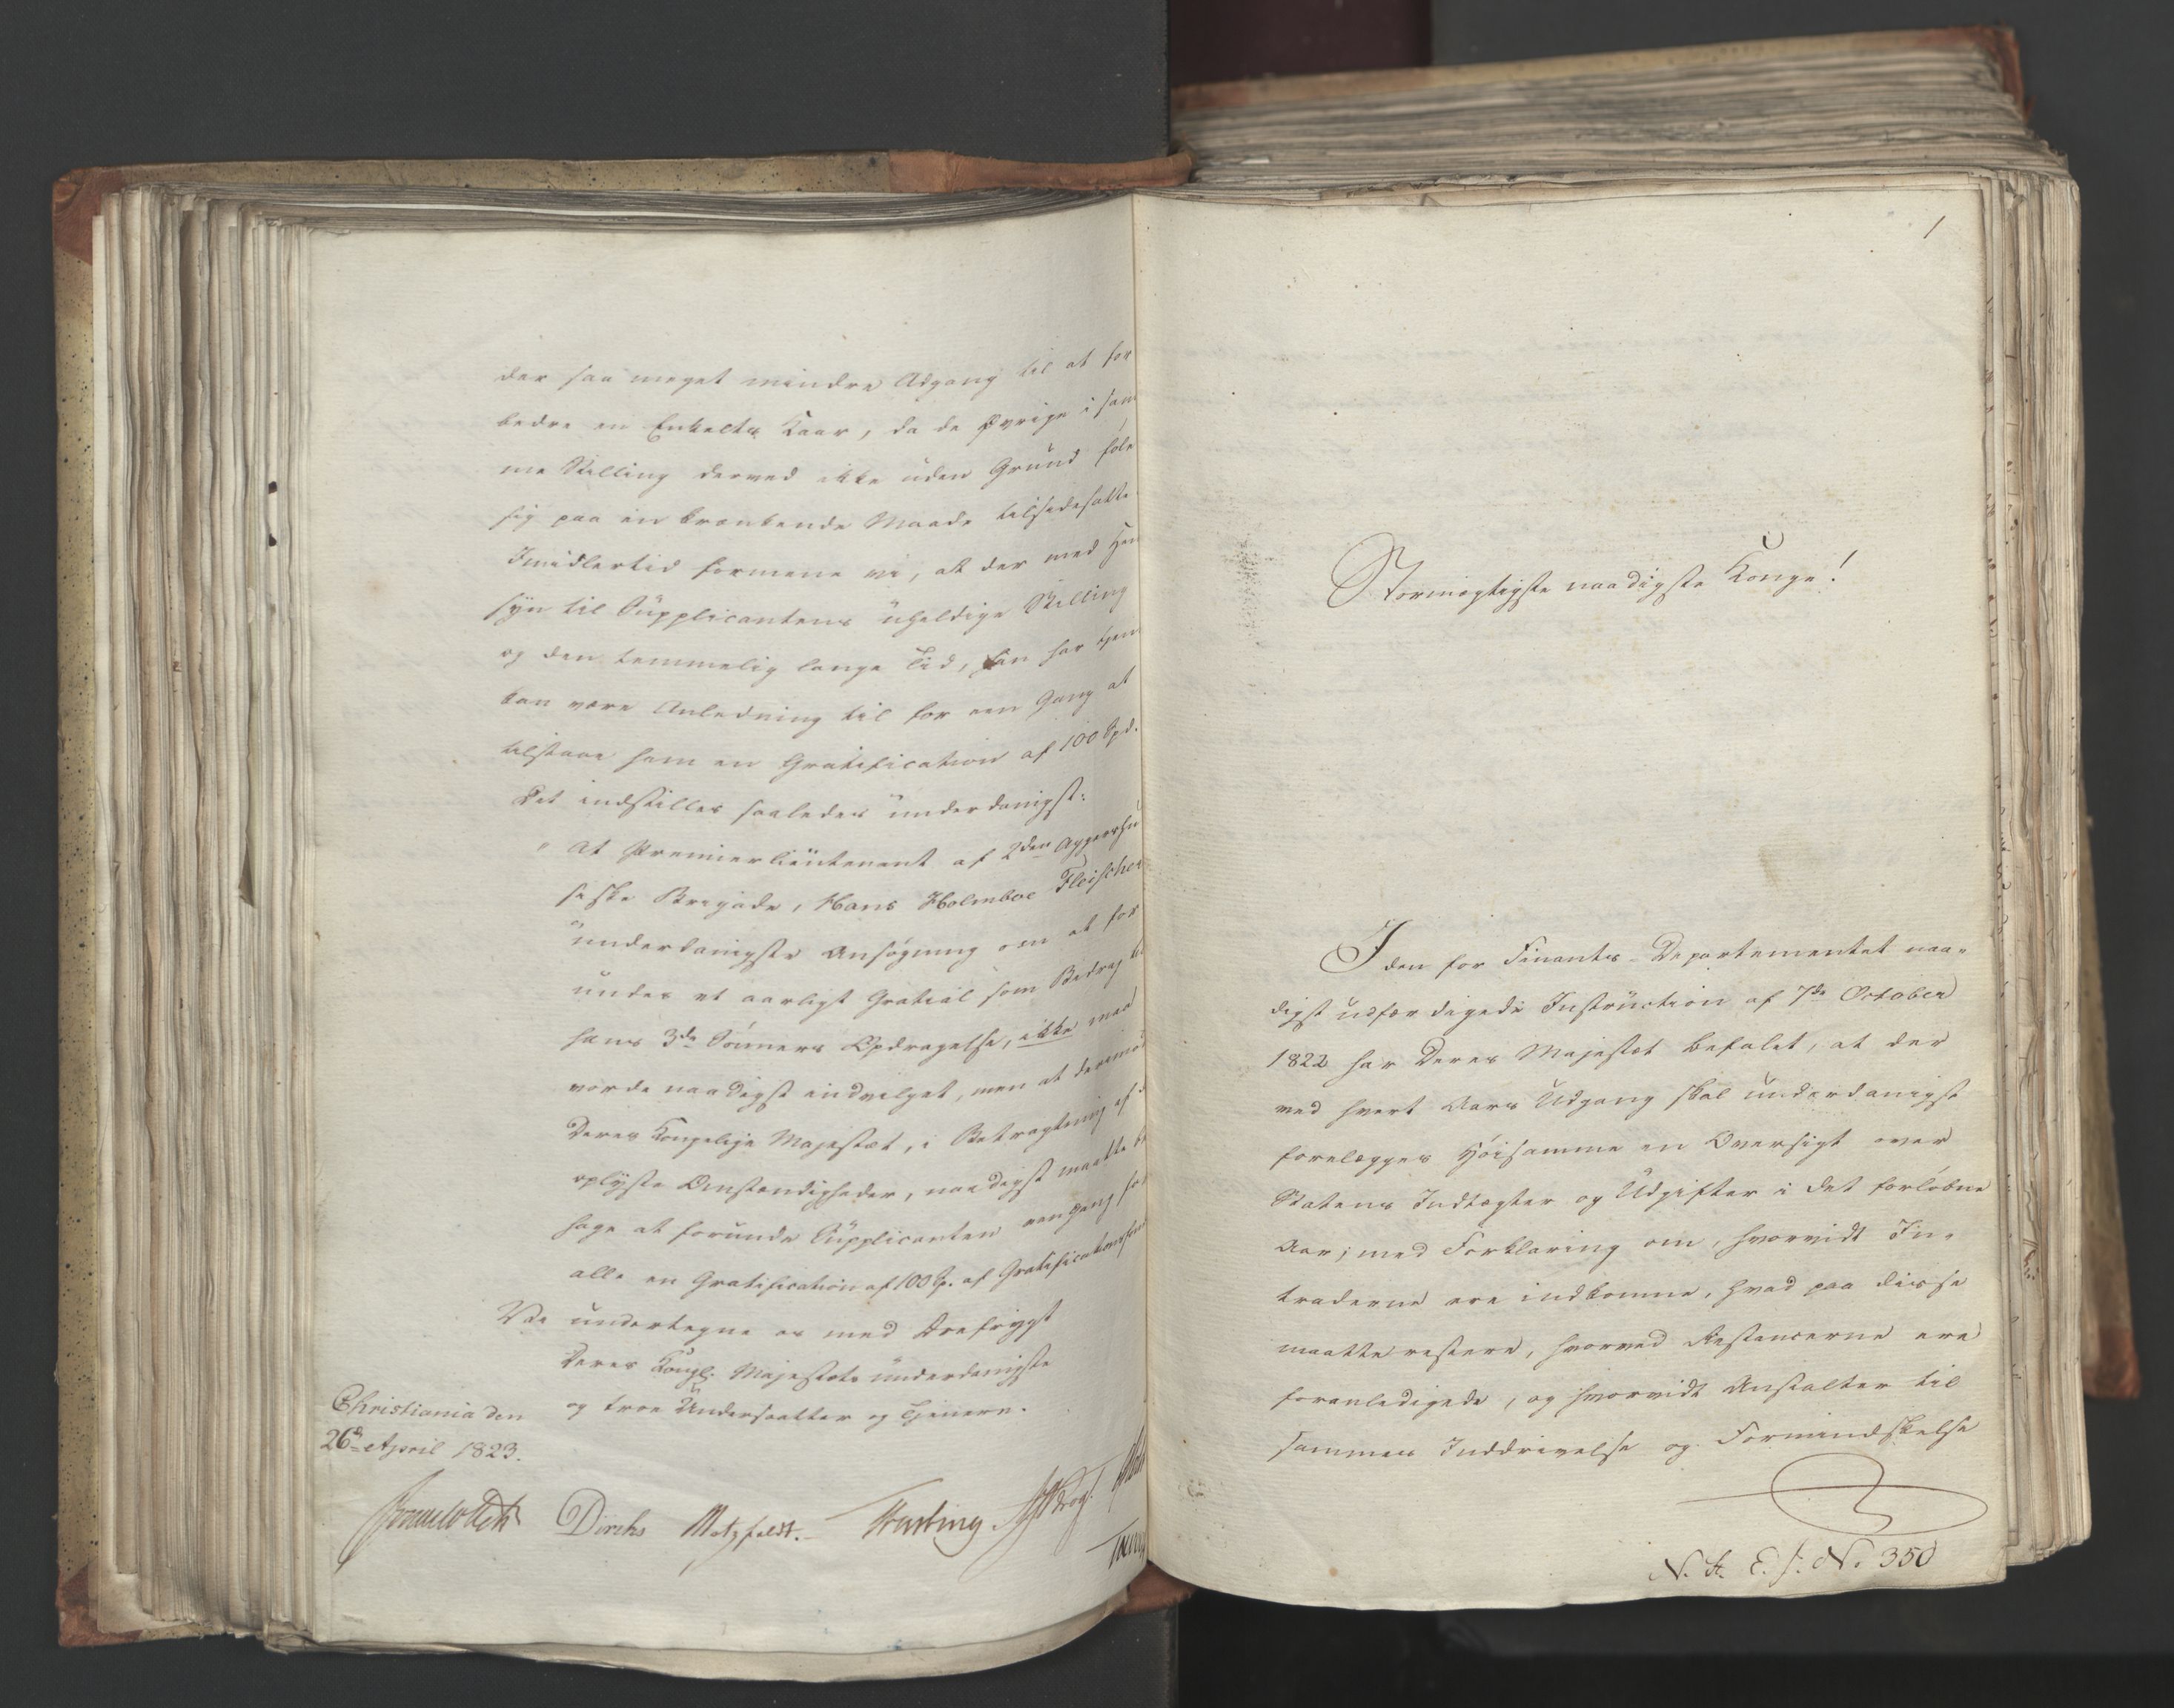 der saa meget mindre Adgang til at for
bedre en Enkelts Kaar, da de Øvrige i sam
me Stilling derved ikke uden Grund føle
sig paa en krænkende Maade tilsidesatte.
Imidlertid formene vi, at der med Hen
syn til Supplicantens uheldige Stilling
og den temmelig lange Tid, han har tjent
kan være Anledning til for een Gang at
tilstaae ham en Gratification af 100 Spd.
Det indstilles saaledes underdanigst:
" At Premierlieutenant af 2den Aggershu
siske Brigade, Hans Holmboe Fleischer
underdanigste Ansøgning om at for
undes et aarligt Gratial som Bidrag til
hans 3de Sønners Opdragelse, ikke med
vorde naadigst indvilget, men at derimod
Deres Kongelige Majestæt, i Betragtning af
oplyste Omstændigheder, naadigst maatte be
hage at forunde Supplicanten een Gang for
alle en Gratification af 100 Sp. af Gratificationsfond
Vi undertegne os med Ærefrygt
Deres Kongl. Majestæts underdanigste
og troe Undersaatter og Tjenere.
Christiania den
26de April 1823.
Diriks Motzfeldt.
1
Stormægtigste naadigste Konge!
I den for Finants-Departementet naa-
digst udfærdigede Instruction af 7de October
1822 har Deres Majestæt befalet, at der
ved hvert Aars Udgang skal underdanigst
forelægges Høisamme en Oversigt over
Statens Indtægter og Udgifter i det forløbne
Aar; med Forklaring om, hvorvidt In-
traderne ere indkomne, hvad paa disse
maatte restere, hvorved Restancerne ere
foranledigede, og hvorvidt Anstalter til
sammes Inddrivelse og Formindskelse
N. St. E. J. No. 350